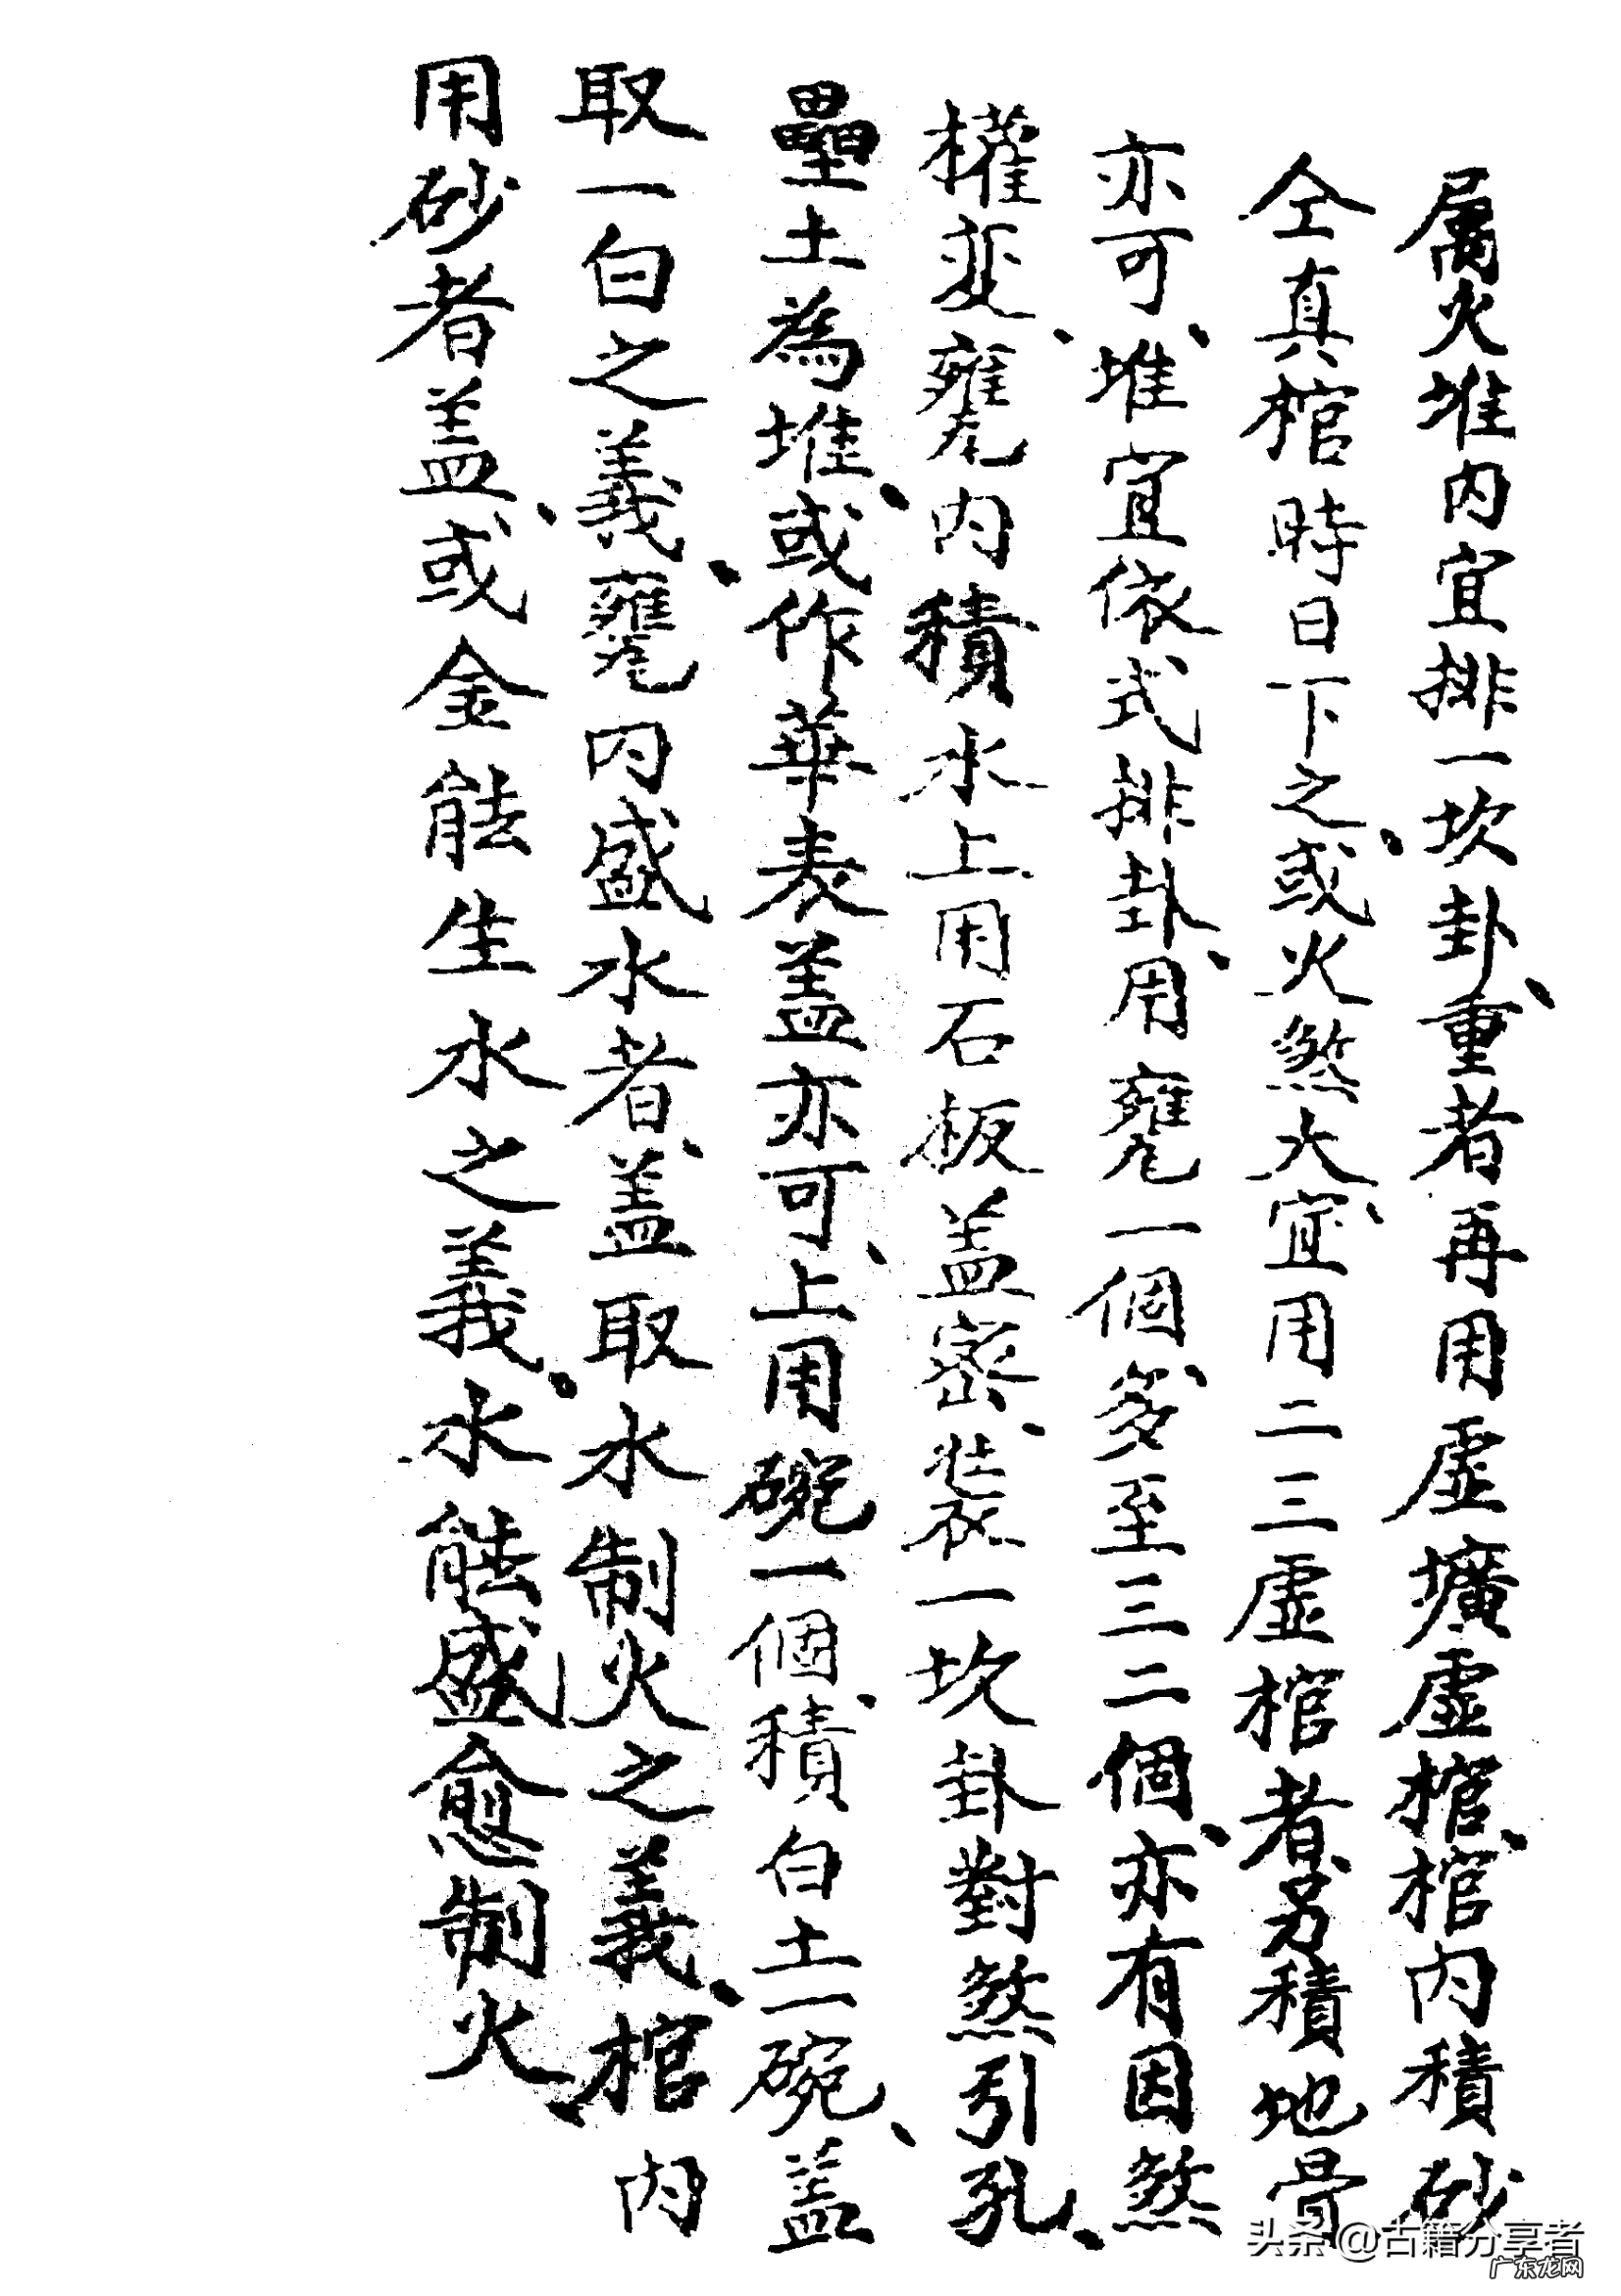 属火堆内宜排一坎卦、重者再用虚壙虚棺、棺内積砂
仝真棺時日下之、或火煞大、宜用二三虚棺者、另積地骨
亦可、堆宜依式排卦、用甕一個、多至三二個、亦有因煞
權变、甕内積水上用石板盖密、裝一坎卦對煞引孔、
壘土為堆、或作華表盖亦可、上用碗一個、積白土一碗、盖
取一白之義、甕内盛水者、盖取水制火之義、棺内
用砂者盖、或金能生水之義、水能盛愈制火、
头条@古籍分享者
广东龙网